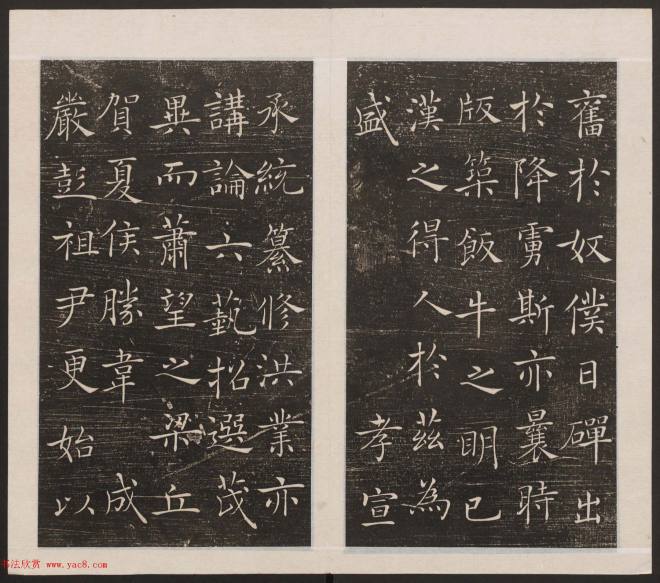 奮於奴僕日磾出
於降虜斯亦曩時
版築飯牛之明已
漢之得人於茲為
盛 孝宣
承統纂修洪業亦
講論六藝招選茂
異而蕭望之梁丘
賀夏侯勝韋 成
嚴彭祖尹更始以
书法欣赏 www.yac8.com